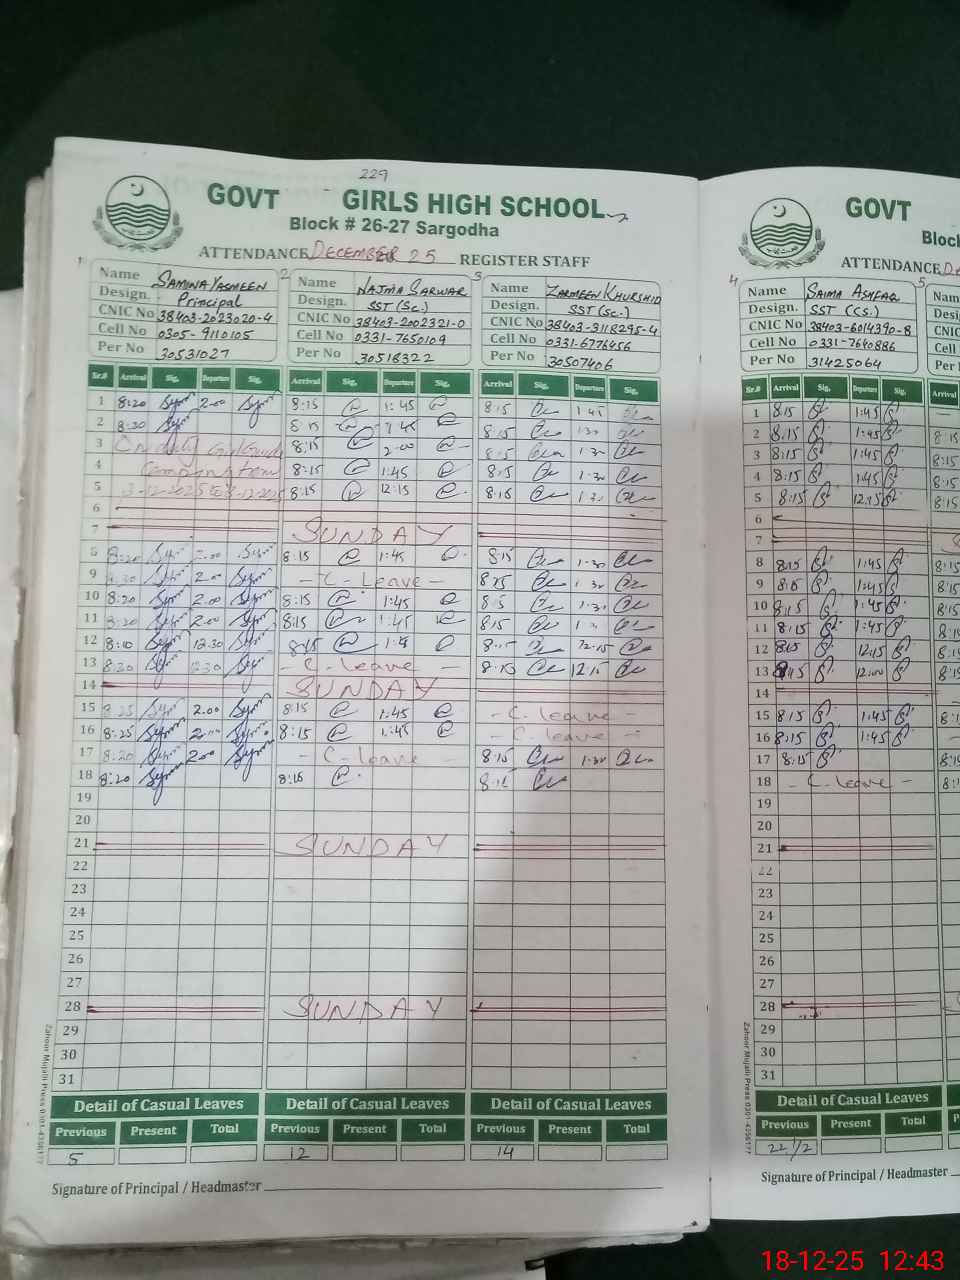 229
GOVT GIRLS HIGH SCHOOL
Block # 26-27 Sargodha
ATTENDANCE DECEMBER 25 REGISTER STAFF
1
Name SAMINA YASMEEN
Design. Principal
CNIC No 38403-2023020-4
Cell No 0305-9110105
Per No 30531027
2
Name NAJMA SARWAR
Design. SST (Sc.)
CNIC No 38403-2002321-0
Cell No 0331-7650109
Per No 30518322
3
Name ZARMEEN KHURSHID
Design. SST (Sc.)
CNIC No 38403-3118295-4
Cell No 0331-6776456
Per No 30507406
Sr.# Arrival Sig. Departure Sig. Arrival Sig. Departure Sig. Arrival Sig. Departure Sig.
1 8:20 2.00 8:15 1:45 8:15 1:45
2 8:30 8:15 1:45 8:15 1:30
3 On duty Girl Guide 8:15 2:00 8:15 1:30
4 8:15 1:45 8:15 1:30
5 3-12-2025 to 8-12-2025 8:15 12:15 8:15 1:30
6
7 SUNDAY
8 8:20 2.00 8:15 1:45 8:15 1:30
9 8:20 2.00 - C. Leave - 8:15 1:30
10 8:20 2.00 8:15 1:45 8:15 1:30
11 8:20 2.00 8:15 1:45 8:15
12 8:10 12.30 8:15 8:15 12:15
13 8:20 12:30 - C. leave - 8:15 12:15
14 SUNDAY
15 8:25 2.00 8:15 1:45 - C. leave -
16 8:25 2.00 8:15 1:45 - C. leave -
17 8:20 2.00 - C. leave - 8:15 1:30
18 8:20 8:15 8:15
19
20
21 SUNDAY
22
23
24
25
26
27
28 SUNDAY
29
30
31
Detail of Casual Leaves Detail of Casual Leaves Detail of Casual Leaves
Previous Present Total Previous Present Total Previous Present Total
5 12 14
Signature of Principal / Headmaster
Zahoor Mujahi Press 0301-4356177
GOVT
Block
ATTENDANCE De
4
Name SAIMA ASHFAQ
Design. SST (CS.)
CNIC No 38403-6014390-8
Cell No 0331-7640886
Per No 31425064
5
Nam
Desi
CNIC
Cell
Per
Sr.# Arrival Sig. Departure Sig.
1 8:15 1:45
2 8:15 1:45 8:15
3 8:15 1:45 8:15
4 8:15 1:45 8:15
5 8:15 12:15 8:15
6
7 S
8 8:15 1:45 8:15
9 8:15 1:45 8:15
10 8:15 1:45 8:15
11 8:15 1:45 8:15
12 8:15 12:15 8:15
13 8:15 12:00 8:15
14
15 8:15 1:45
16 8:15 1:45
17 8:15 8:15
18 - C. leave -
19
20
21
22
23
24
25
26
27
28
29
30
31
Detail of Casual Leaves
Previous Present Total
22 1/2
Signature of Principal / Headmaster
Zahoor Mujahi Press 0301-4356177
18-12-25 12:43